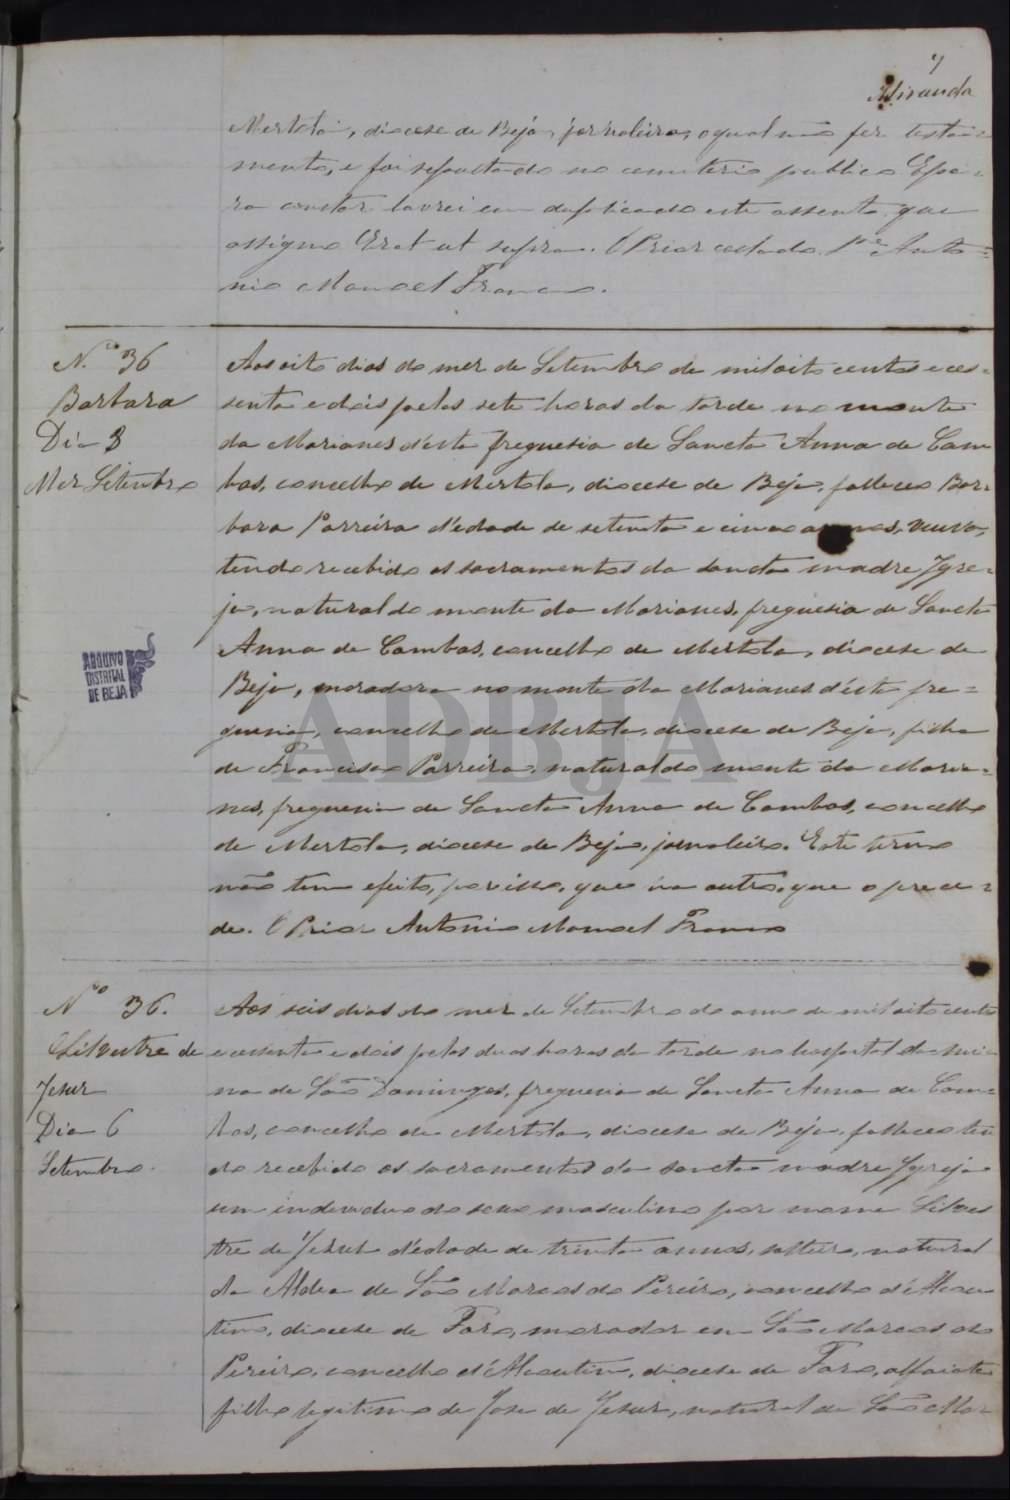 7
Miranda
Mertola, diocese de Beja, jornaleiro, o qual não fez testa-
mento, e foi sepultado no cemiterio publico E pa-
ra constar lavrei em duplicado este assento que
assigno Erat ut supra. O Prior collado Pe Anto-
nio Manoel Franco.
N.o 36
Barbara
Dia 8
Mez Setembro
Aos oito dias do mez de Setembro de mil oito centos e ses-
senta e dois pelas sete horas da tarde no monte
da Marianes d'esta freguesia de Sancta Anna de Cam
bas, concelho de Mertola, diocese de Beja, falleceo Bar-
bara Parreira d'edade de setenta e cinco annos, viuva,
tendo recebido os sacramentos da sancta madre Igre-
ja, natural do monte da Marianes, freguesia de Sancta
Anna de Cambas, concelho de Mertola, diocese de
Beja, moradora no monte da Marianes d'esta fre-
guesia, concelho de Mertola, diocese de Beja, filha
de Francisco Parreira, natural do monte da Maria-
nes, freguesia de Sancta Anna de Cambas, concelho
de Mertola, diocese de Beja, jornaleiro. Este termo
não tem efeito, por isso, que vai outro, que o prece-
de. O Prior Antonio Manoel Franco
ARQUIVO
DISTRITAL
DE BEJA
ADBJA
No 36.
Silvestre de
Jesus
Dia 6
Setembro
Aos seis dias do mez de Setembro do anno de mil oito cento
e cessenta e dois pelas duas horas da tarde no hospital da mi-
na de São Domingos, freguesia de Sancta Anna de Cam-
bas, concelho de Mertola, diocese de Beja, falleceo ten
do recebido os sacramentos da sancta madre Igreja
um individuo do sexo masculino por nome Silves
tre de Jesus d'edade de trinta annos, solteiro, natural
da Aldea de São Marcos do Pereiro, concelho d'Alcou
tim, diocese de Faro, morador em São Marcos do
Pereiro, concelho d'Alcoutim, diocese de Faro, alfaiate
filho legitimo de Jose de Jesus, natural de São Mar